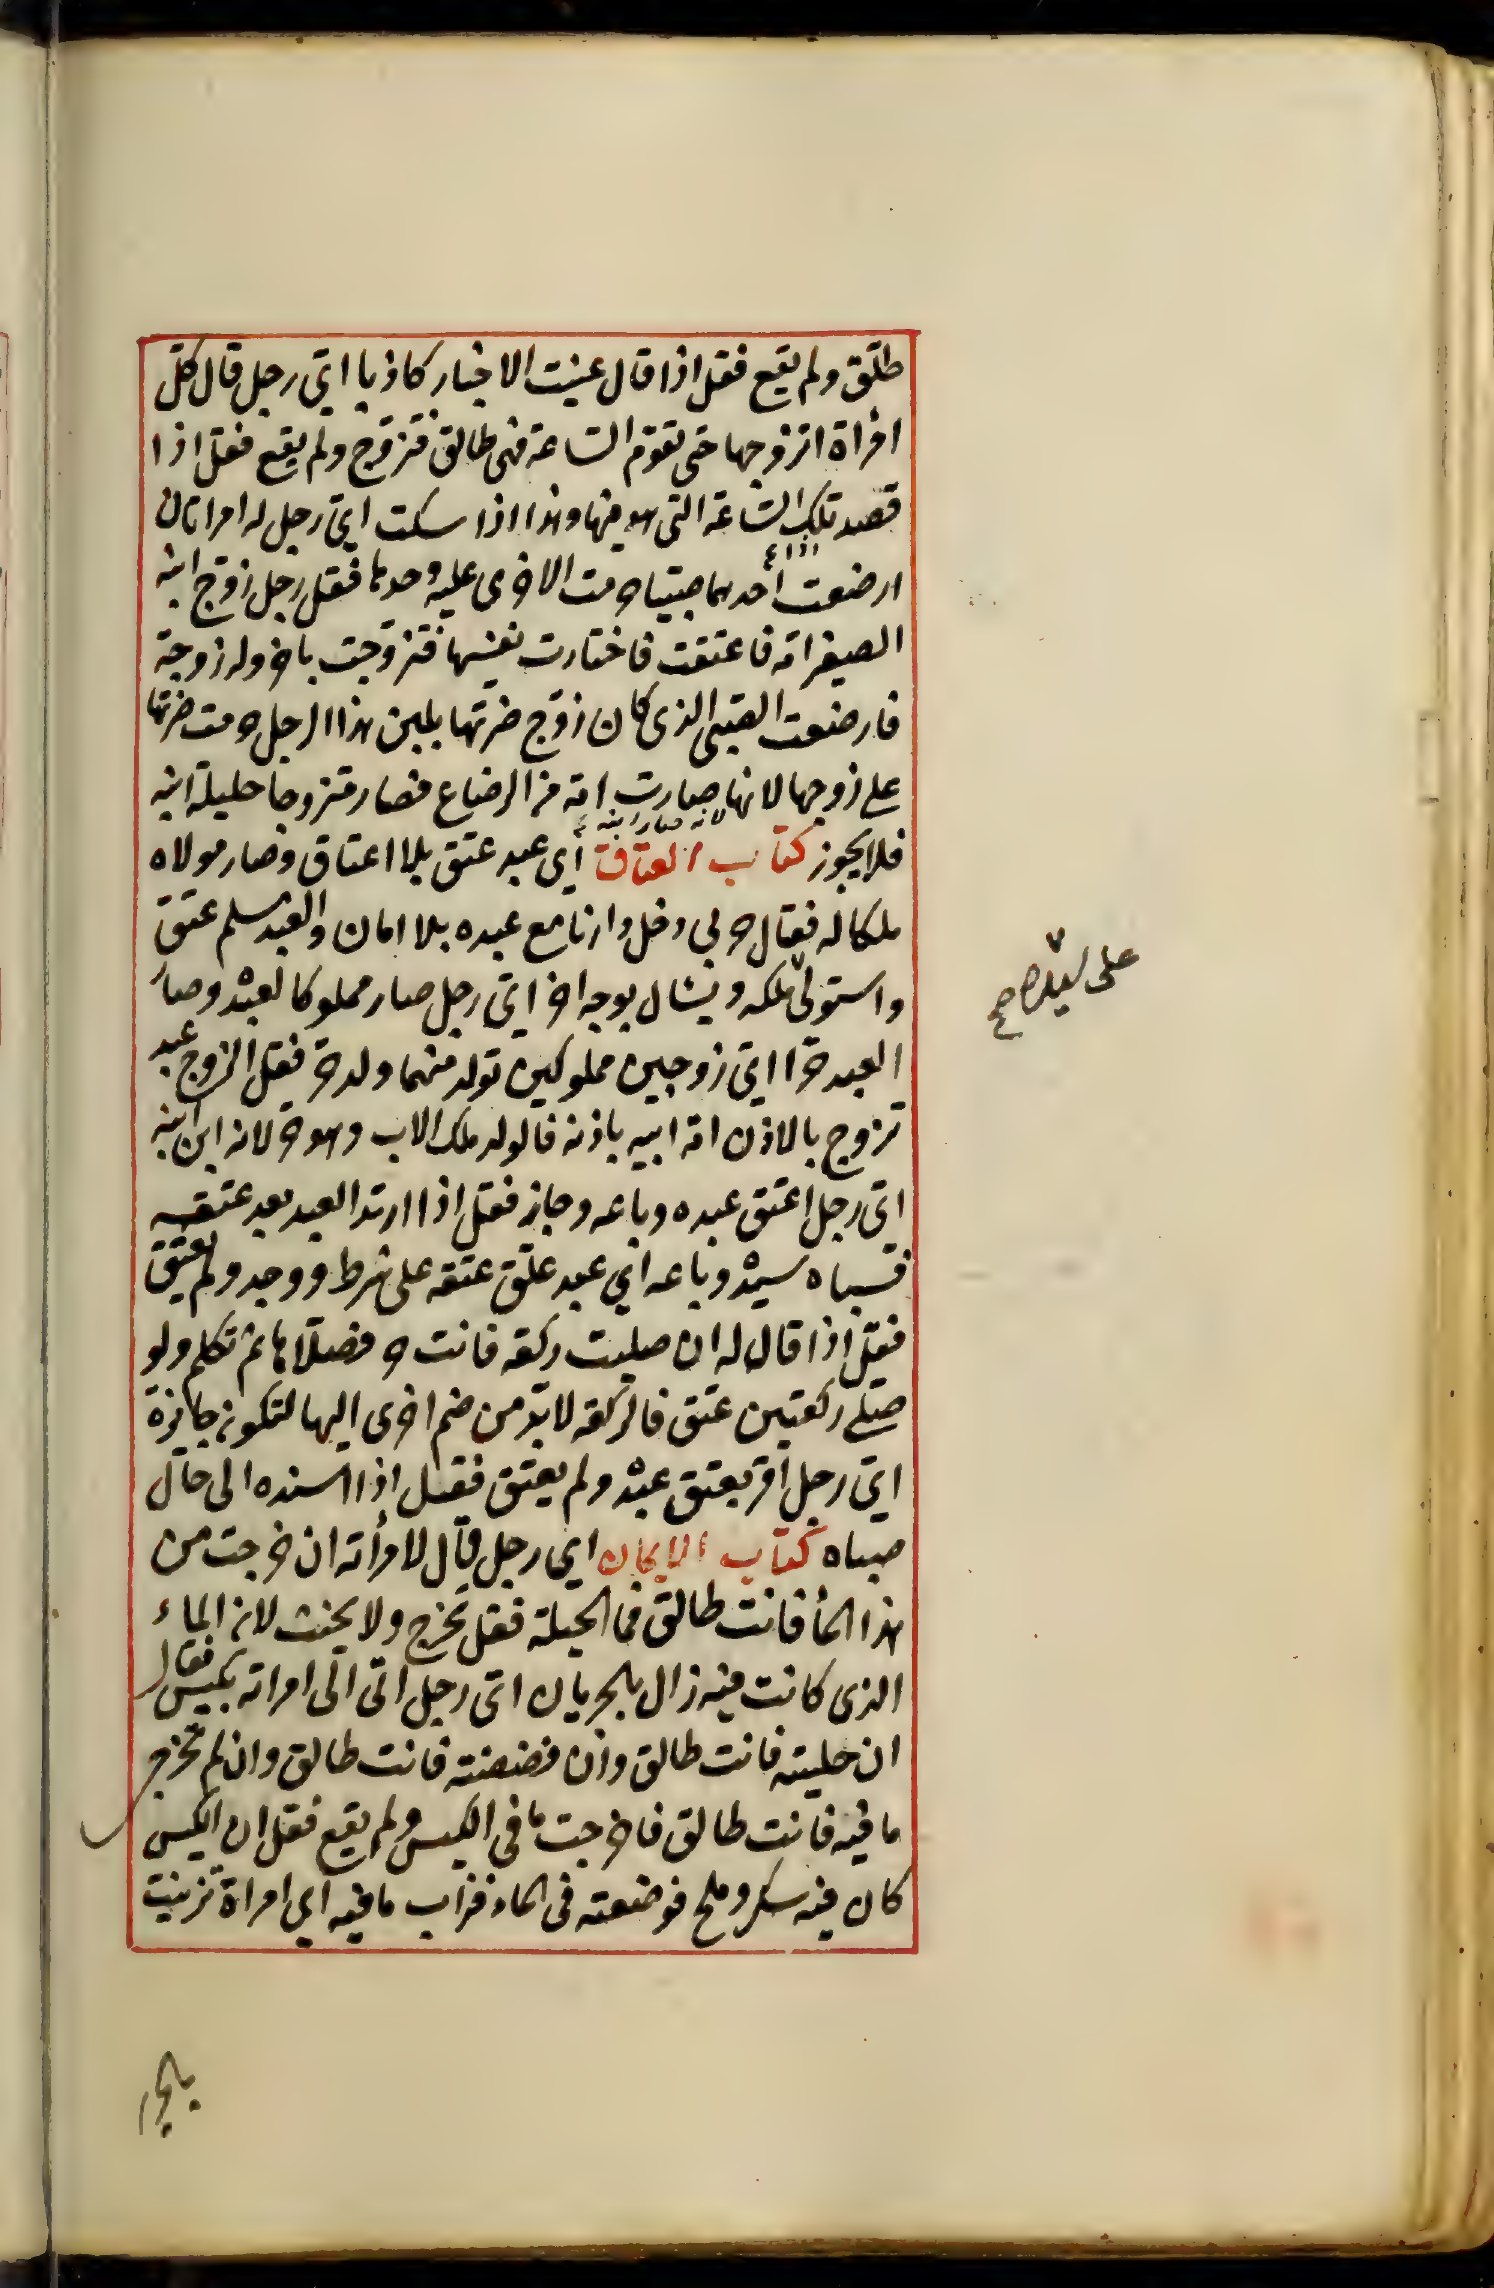 طلّق ولم يقع فقل اذا قال عنيت الاخبار كاذبا ايّ رجل قال كلّ
امرأة اتزوجها حتى تقوم الساعة فهى طالق فتزوّج ولم يقع فقل اذا
قصد تلك الساعة التى هو فيها وهذا اذا سكت ايّ رجل له امراتان
ارضعت احديهما صبيا حرمت الاخرى عليه وحدها فقل رجل زوّج ابنه
الصغير امة فاعتقت فاختارت نفسها فتزوّجت باخر وله زوجة
فارضعت الصبى الذى كان زوّج ضرّتها بلبن هذا الرجل حرمت ضرتها
على زوجها لانها صارت امه من الرضاع فصار متزوجا حليلة ابنه
لانه صار ابنه
فلا يجوز كتاب العتاق أى عبد عتق بلا اعتاق وصار مولاه
ملكا له فقل حربى دخل دارنا مع عبده بلا امان والعبد مسلم عتق
واستولى ملكه ويسال بوجه اخر ايّ رجل صار مملوكا لعبده وصار
على سيده صح
العبد حرّا ايّ زوجين مملوكين تولد منهما ولد حر فقل الزوج عبد
تزوج بالاذن امة ابيه باذنه فالولد ملك الاب وهو حرّ لانه ابن ابنه
ايّ رجل اعتق عبده وباعه وجاز فقل اذا ارتد العبد بعد عتقه
فسباه سيده وباعه اي عبد علّق عتقه على شرط ووجد ولم يعتق
فقل اذا قال له ان صليت ركعة فانت حر فصلاها ثم تكلم ولو
صلى ركعتين عتق فالركعة لا بدّ من ضم اخرى اليها لتكون جائزة
ايّ رجل اقرّ بعتق عبده ولم يعتق فقل اذا اسنده الى حال
صباه كتاب الايمان اى رجل قال لامرأته ان خرجت من
هذا الماء فانت طالق فما الحيلة فقل تخرج ولا يحنث لان الماء
الذى كانت فيه زال بالجريان ايّ رجل اتى الى امراته بكيس فقال
ان حليته فانت طالق وان فضضته فانت طالق وان لم تخرج
ما فيه فانت طالق فاخرجت ما فى الكيس ولم يقع فقل ان الكيس
كان فيه سكر وملح فوضعته فى الماء فذاب ما فيه اى امراة تزينت